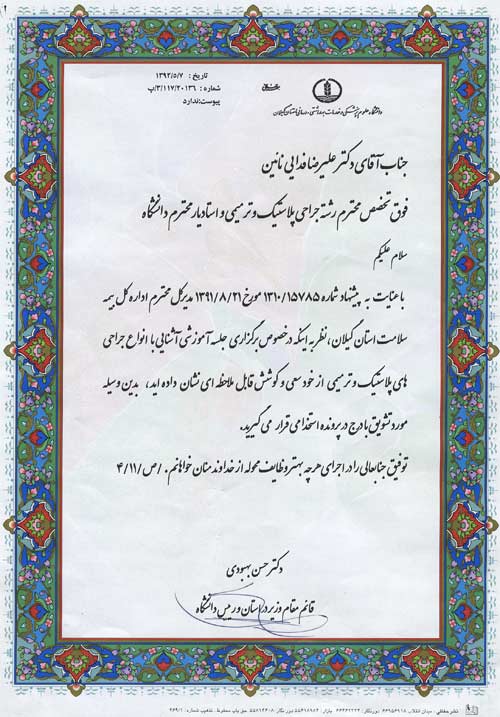 تاریخ : ۱۳۹۲/۵/۷
شماره : ۳/۱۱۷/۲۰۱۳۶/پ
پیوست:ندارد
دانشگاه علوم پزشکی و خدمات بهداشتی، درمانی استان گیلان
جناب آقای دکتر علیرضا فدایی نائین
فوق تخصص محترم رشته جراحی پلاستیک و ترمیمی و استادیار محترم دانشگاه
سلام علیکم
با عنایت به پیشنهاد شماره ۱۳۱۰/۱۵۷۸۵ مورخ ۱۳۹۱/۸/۲۱ مدیر کل محترم اداره کل بیمه
سلامت استان گیلان، نظر به اینکه در خصوص برگزاری جلسه آموزشی آشنایی با انواع جراحی
های پلاستیک و ترمیمی از خود سعی و کوشش قابل ملاحظه ای نشان داده اید، بدین وسیله
مورد تشویق با درج در پرونده استخدامی قرار می گیرید.
توفیق جنابعالی را در اجرای هر چه بهتر وظایف محوله از خداوند منان خواهانم. /ص/۴/۱۱
دکتر حسن بهبودی
قائم مقام وزیر در استان و رییس دانشگاه
نشر حقانی - میدان انقلاب ۶۶۹۵۶۹۱۸